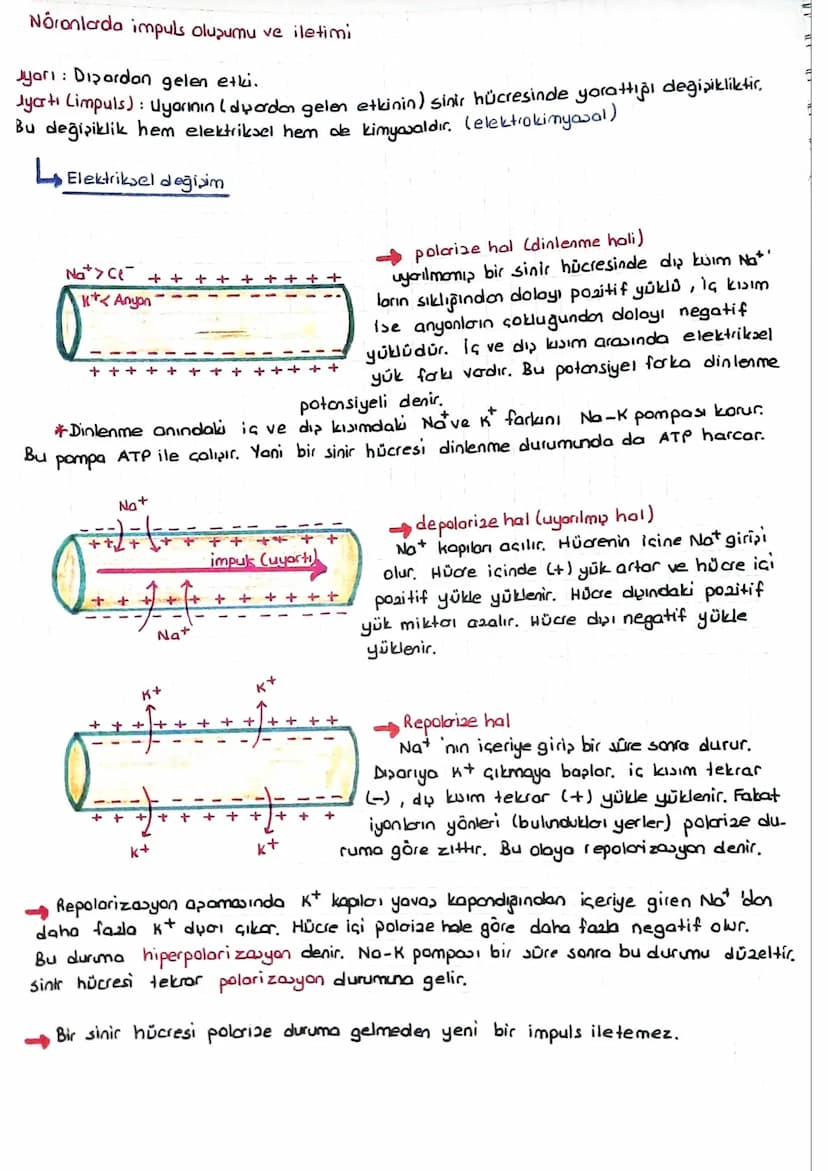 Nöronlarda impuls oluşumu ve iletimi
Uyarı : Dışardan gelen etki.
Uyartı (impuls) : Uyarının (dışardan gelen etkinin) sinir hücresinde yarattığı değişikliktir.
Bu değişiklik hem elektriksel hem de kimyasaldır. (elektrokimyasal)
Elektriksel değişim
→ polarize hal (dinlenme hali)
uyarılmamış bir sinir hücresinde dış kısım Na⁺'
ların sıklığından dolayı pozitif yüklü, iç kısım
ise anyonların çokluğundan dolayı negatif
yüklüdür. İç ve dış kısım arasında elektriksel
yük farkı vardır. Bu potansiyel farka dinlenme
potansiyeli denir.
Na⁺ > Cl⁻ + + + + + + + + +
K⁺ < Anyon - - - - - - - - -
- - - - - - - - - - - -
+ + + + + + + + + + + + +
*Dinlenme anındaki iç ve dış kısımdaki Na⁺ ve K⁺ farkını Na-K pompası korur.
Bu pompa ATP ile çalışır. Yani bir sinir hücresi dinlenme durumunda da ATP harcar.
Na⁺
impuls (uyartı)
Na⁺
→ depolarize hal (uyarılmış hal)
Na⁺ kapıları açılır. Hücrenin içine Na⁺ girişi
olur. Hücre içinde (+) yük artar ve hücre içi
pozitif yükle yüklenir. Hücre dışındaki pozitif
yük miktarı azalır. Hücre dışı negatif yükle
yüklenir.
K+ K+
K+ K+
→ Repolarize hal
Na⁺ 'nın içeriye giriş bir süre sonra durur.
Dışarıya K+ çıkmaya başlar. iç kısım tekrar
(-), dış kısım tekrar (+) yükle yüklenir. Fakat
iyonların yönleri (bulundukları yerler) polarize du-
ruma göre zıttır. Bu olaya repolarizasyon denir.
→ Repolarizasyon aşamasında K⁺ kapıları yavaş kapandığından içeriye giren Na⁺ 'dan
daha fazla K⁺ dışarı çıkar. Hücre içi polarize hale göre daha fazla negatif olur.
Bu duruma hiperpolarizasyon denir. Na-K pompası bir süre sonra bu durumu düzeltir.
sinir hücresi tekrar polarizasyon durumuna gelir.
→ Bir sinir hücresi polarize duruma gelmeden yeni bir impuls iletemez.